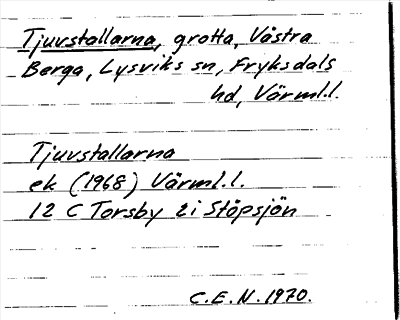 Tjuvstallarna, grotta, Västra
Berga, Lysviks sn, Fryksdals
hd, Värml.l.
Tjuvstallarna
ek (1968) Värml.l.
12 C Torsby 2i Stöpsjön
C.E.N. 1970.